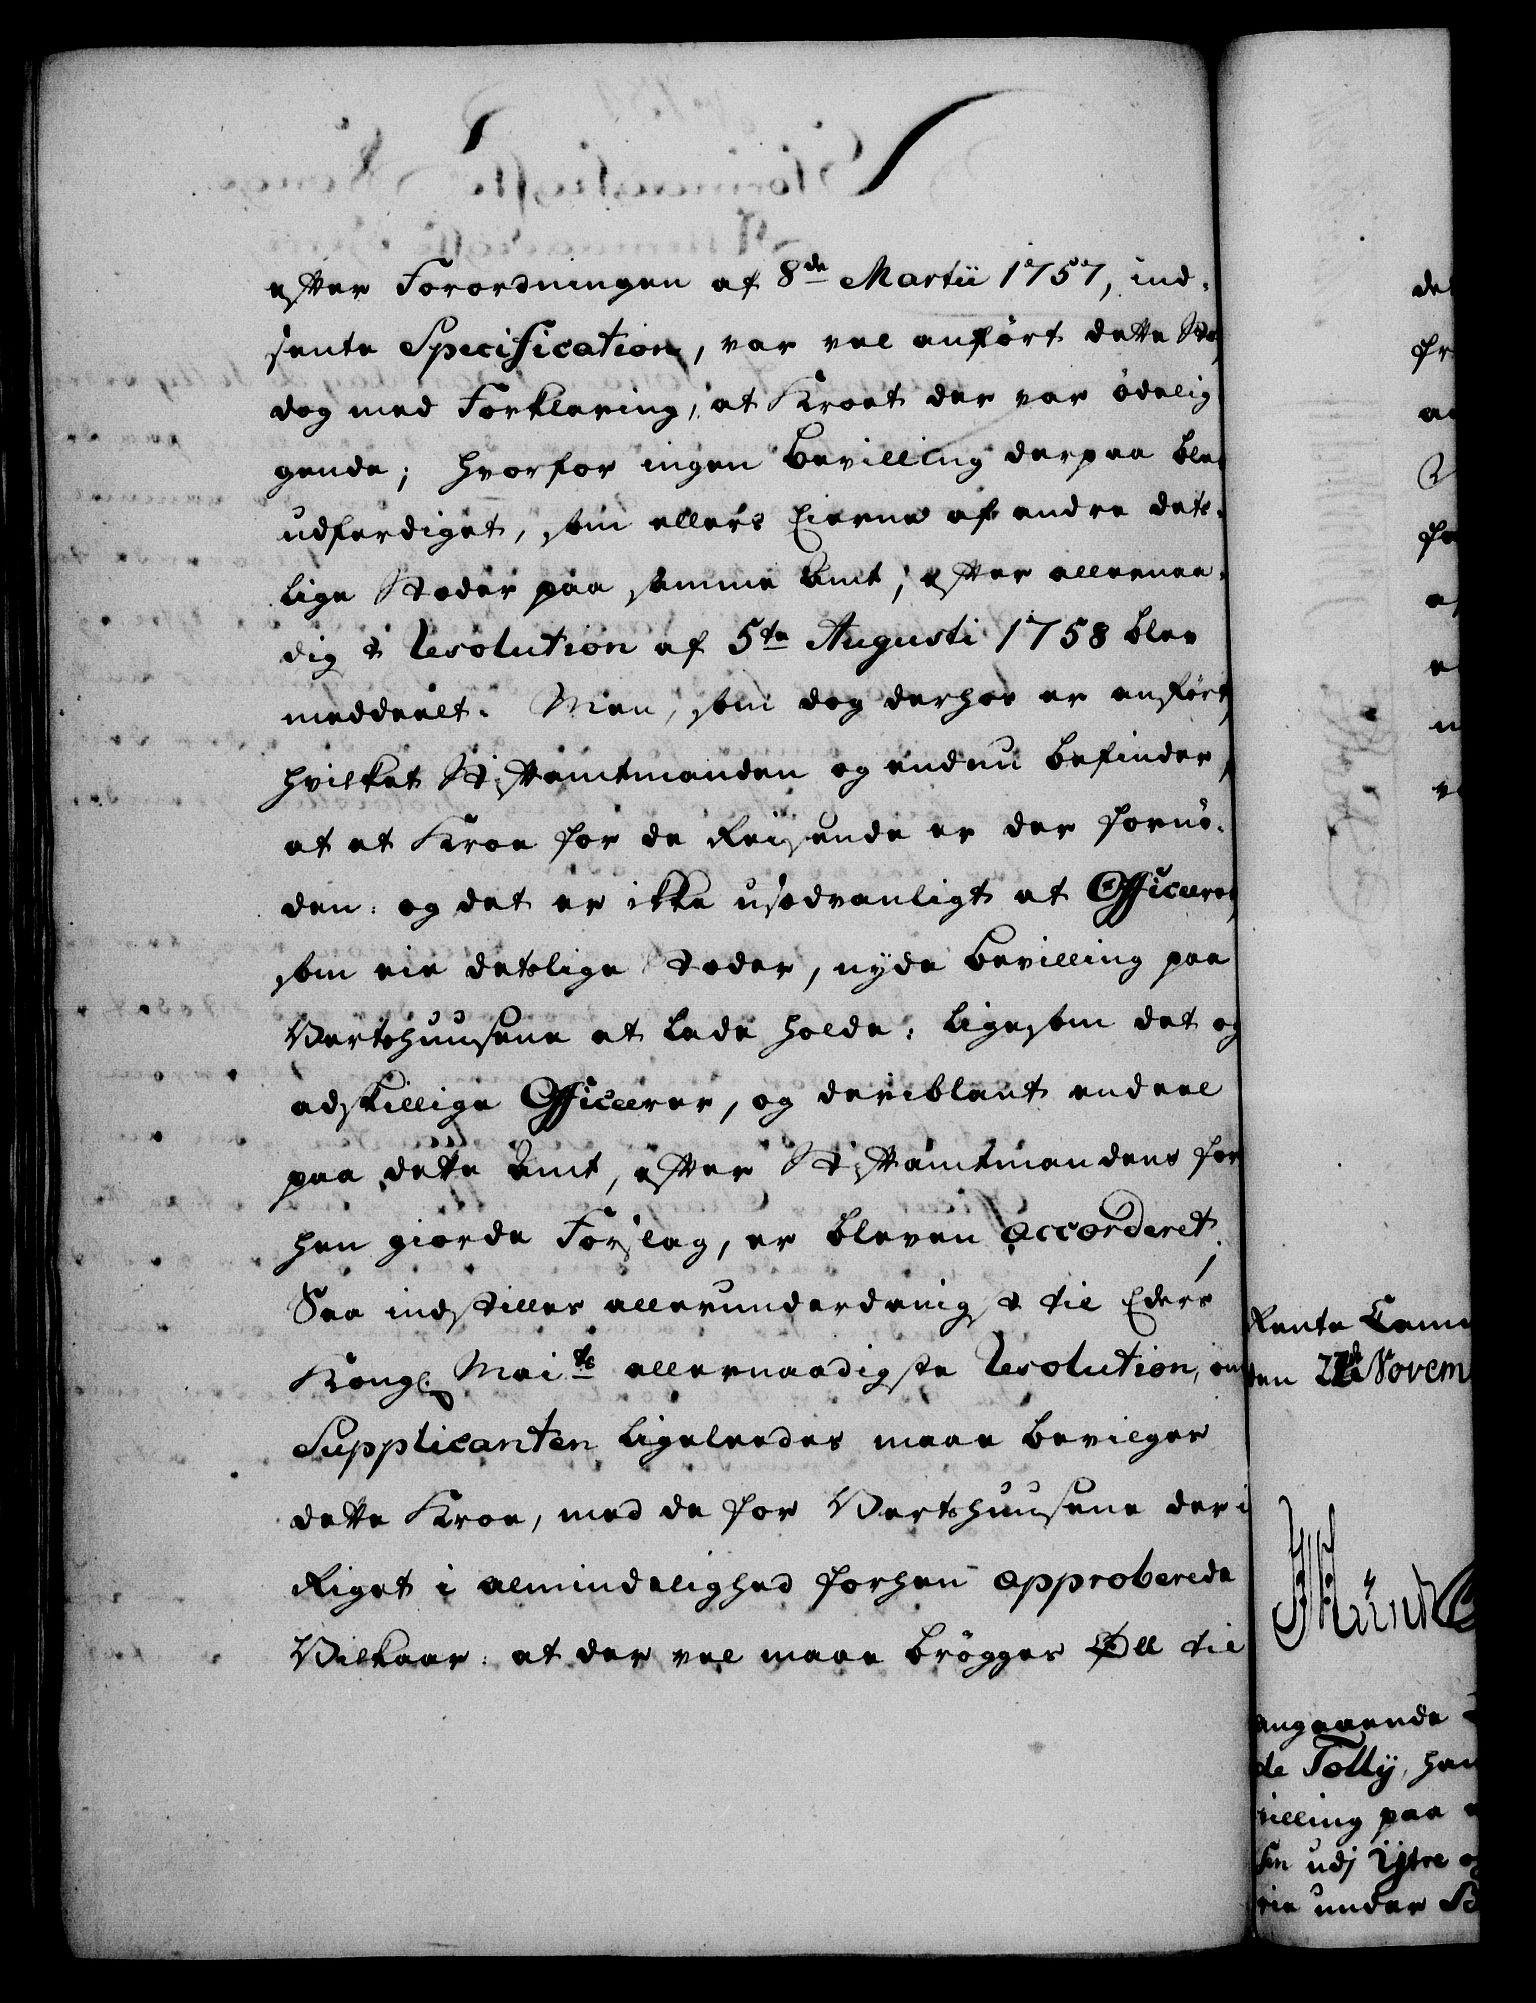 efter Forordningen af 8de Martii 1757, ind-
sente Specification, var vel anført dette Stæd,
dog med Forklaring, at Kroet der var ødelig-
gende; hvorfor ingen Bevilling derpaa blev
udferdiget, som ellers Eierne af andre dets-
lige Stæder paa samme Amt, efter allernaa-
digst Resolution af 5te Augusti 1758 blev
meddeelt. Men, som dog derhos er anført,
hvilket Stiftamtmanden og endnu befinder,
at et Kroe for de Reisende er der fornø-
den: og det er ikke usædvanligt at Officerer,
som eie detslige Stæder, nyde Bevilling paa
Vertshuusene at lade holde: ligesom det og
adskillige Officerer, og deriblant endeel
paa dette Amt, efter Stiftamtmandens for
hen giorde Forslag, er bleven accorderet;
Saa indstilles allerunderdanigst til Eders
Kongl. Maits allernaadigste Resolution, om
Supplicanten ligeleedes maae bevilges
dette Kroe, med de for Vertshuusene der i
Riget i almindelighed forhen approberede
Vilkaar: at der vel maae brøgges Øll til
Rente Cam
den 22de Novem
angaaende
de Tolly, han
villing paa
udj Ytre
rie under